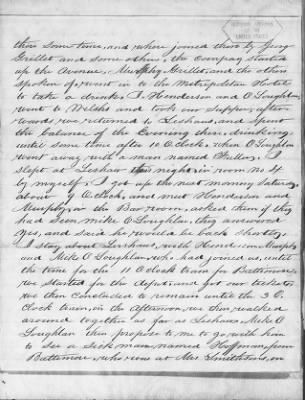 there some time, and where joined there by Geog
Grillet and some others, the Company started
up the Avenue, Murphy Grillet, and the others
spoken of, went in the Metropolitan Hotel
to take a drink. I Henderson and O'Loughlan,
went to Welchs and took our supper, after
wards we returned to Leshaus, and spent
the balance of the Evening there, drinking,
until some time after 10 O'Clock, when O'Loughlan
went away with a man named Fuller. I
slept at Leshaw this night, in room no 4
by myself. I got up the next morning Saturday
about 9 O'Clock, and met Henderson and
Murphy in the Bar room, asked them if they
had seen Mike O'Loughlan, they answered
yes, and said he would be back shortly,
I stay about Leeshaws, with Henderson Murphy
and Mike O'Loughlan, who had joined us, until
the time for the 11 O'Clock train for Baltimore
we started for the depot, and got our tickets
we then concluded to remain until the 3 O.
Clock train, in the Afternoon, we then walked
around together as far as Leshaus, Mike O
Loughlan then propose to me to go with him
to see a sick man named Hoffman, from
Baltimore, who was at Mrs Smithsons, on